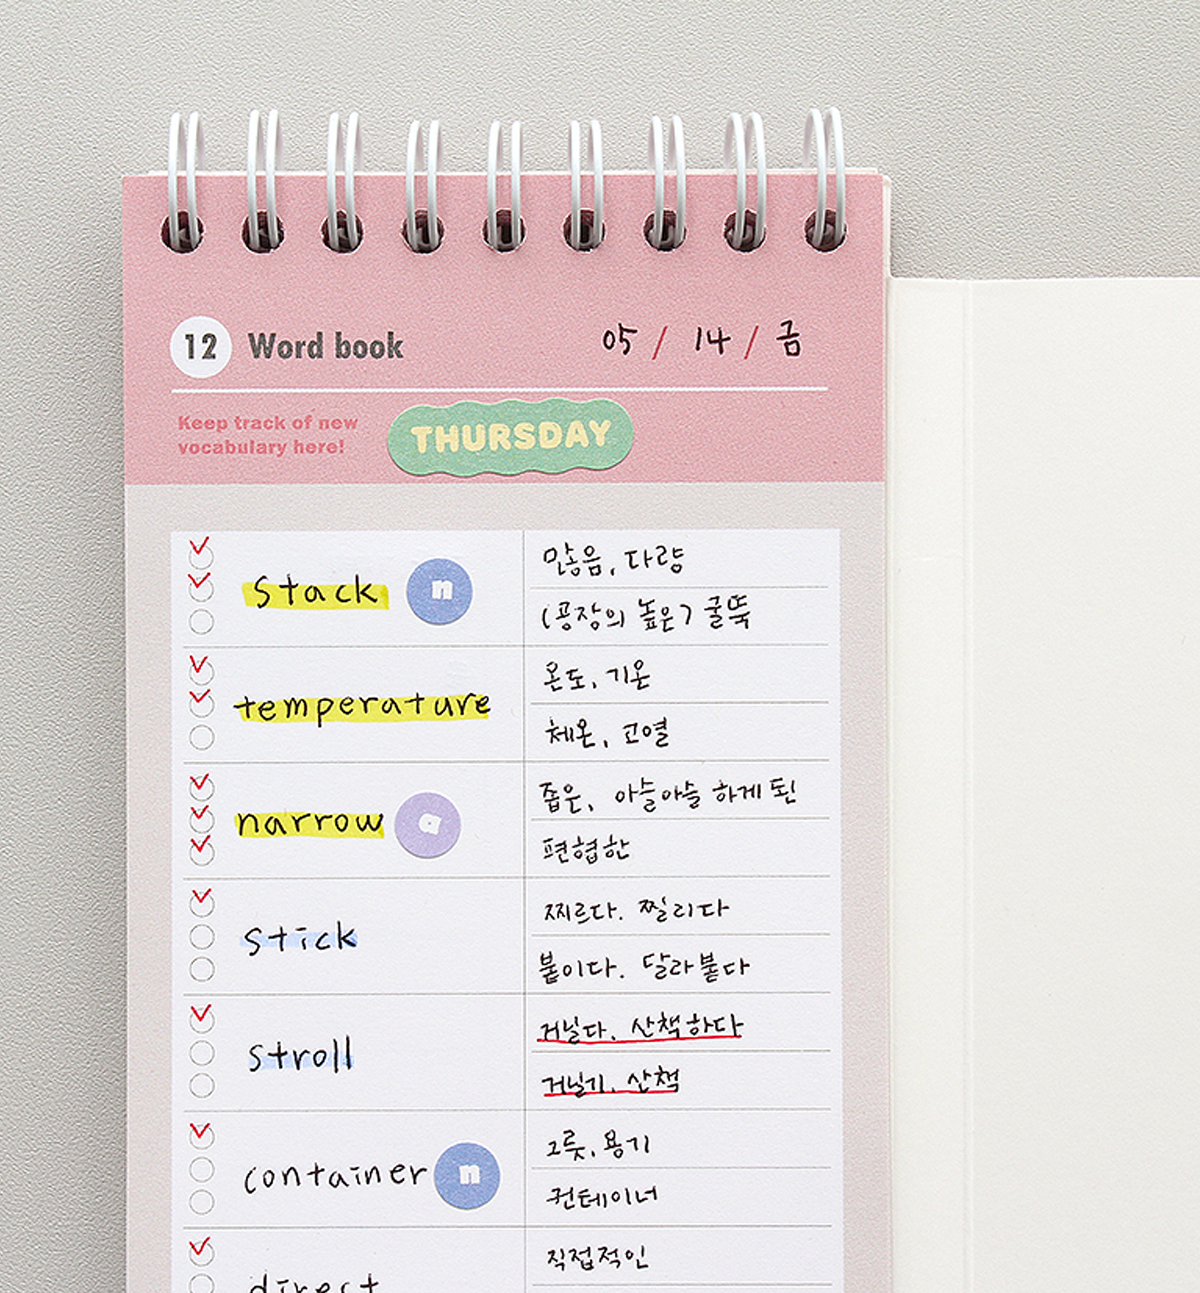 12 Word book 05 / 14 / 금
Keep track of new
vocabulary here!
THURSDAY
stack n
많음, 다량
(공장의 높은) 굴뚝
temperature
온도, 기온
체온, 고열
narrow a
좁은, 아슬아슬 하게 된
편협한
stick
찌르다. 찔리다
붙이다. 달라붙다
stroll
거닐다, 산책하다
거닐기, 산책
container n
그릇, 용기
컨테이너
direct
직접적인